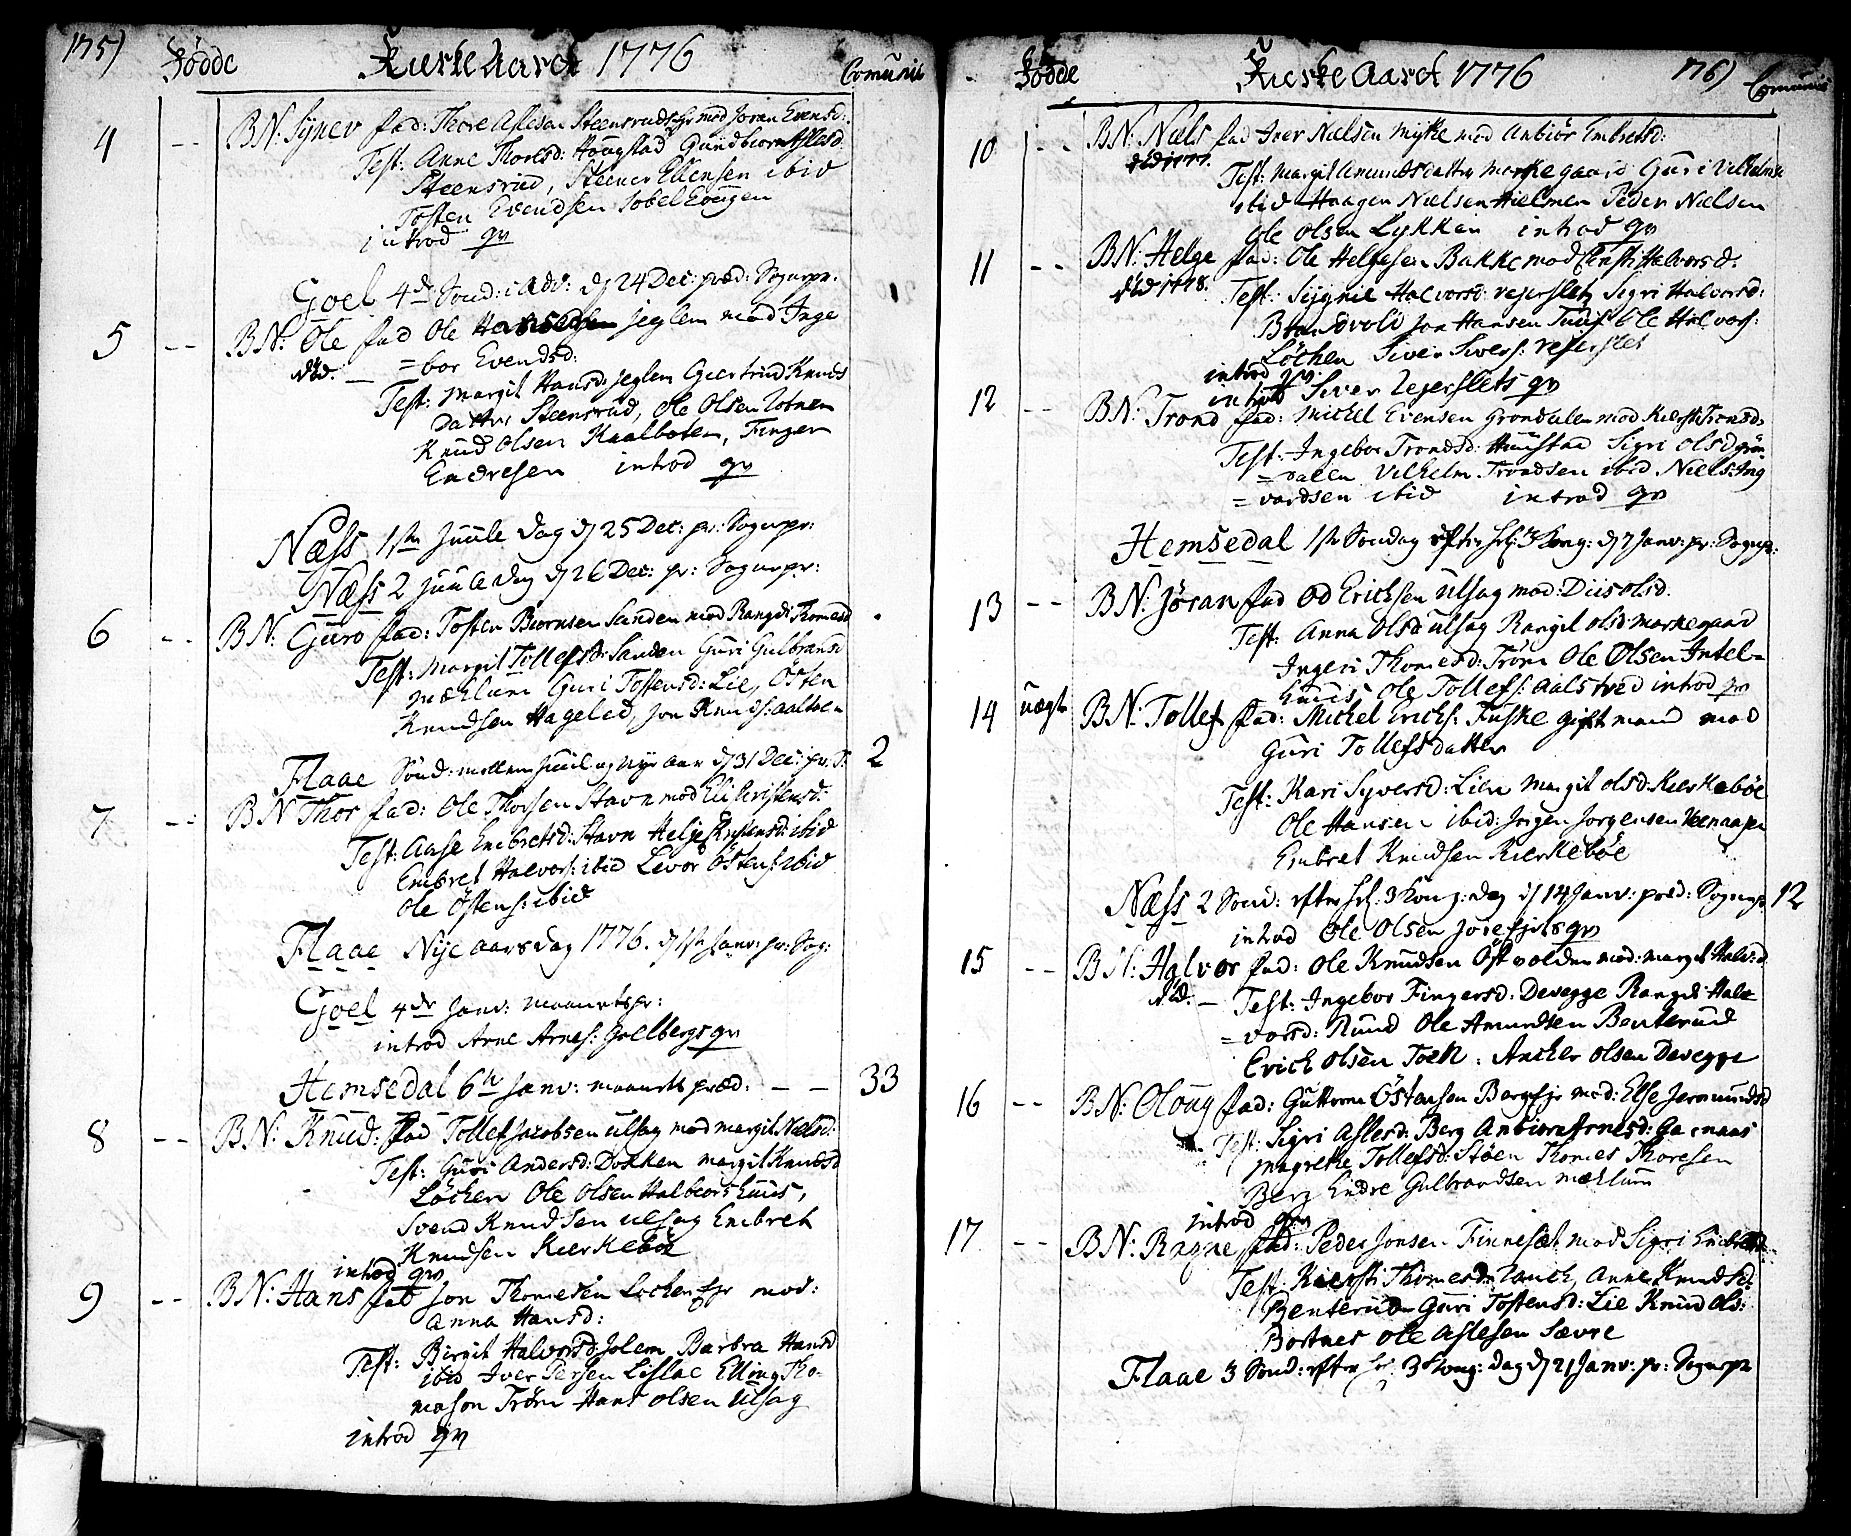 175)
Födde Kirke Aaret 1776 Comunic
4 -- BN: Syver fad: Thore Aslesen Steensrudsejer mod Joran Evensd:
Test: Anne Thoresd: Haagstad Gundbiorn Aslesd
Steensrud, Steener Ellensen ibid
Tosten Evendsen
introd qv
Goel 4de Sönd: i Adv: d 24 Dec: præd: Sognepr.
5 -- BN: Ole fad Ole Jeglem mod Inge
död. — =bor Evendsd:
Test: Margit Hansd: Jeglem Giertrud Knuds
Datter Steensrud, Ole Olsen
Knud Olsen Kaalboten, Finger
Endresen introd qv
Næss 1ste Juule dag d 25 Dec: pr: Sognepr:
Næss 2 Juule dag d 26 Dec: pr: Sognepr:
6 -- BN: Guro fad: Tosten Biornsen Sanden mod Rangdi Thomesd
Test: Margit Tollefsd: Sanden Guri Gulbransd
Mæhlum Guri Tostensd: Lie, Östen
Knudsen Hageled, Jon Knuds:
Flaae Sönd: mellem Juul og nye aar d 31 Dec: pr: S: 2
7 -- BN Thor fad: Ole Thorsen Stavn mod Eli Christensd:
Test: Aase Embretsd: Stavn Helje ibid
Embret Halvors: ibid Levor Östens: ibid
Ole Östens: ibid
Flaae Nije aarsdag 1776. d 1ste Janv: pr: Sog:
Goel 4de Janv: maanetspr:
introd Arne Arnes: Golbergs qv
Hemsedal 6te Janv: maanets præd: — — 33
8 -- BN: Knud: fad Tollef Jacobsen Ulsag mod Margit Nielsd:
Test: Guri Andersd: Dokken Margit Knudsd
Löcken Ole Olsen
Svend Knudsen Ulsag Embret
Knudsen Kierkeböe
introd qv
9 -- BN: Hans fad Jon Thomesen Locken ejr mod:
Anna Hansd:
Test: Birgit Halvorsd: Jolem Barbra Hansd
ibid Iver Persen Eslae Elling Tho-
mason Tröm Hans Olsen Ulsag
introd qv
Födde Kirke Aaret 1776 176) Comunic
10 -- BN: Niels fad Iver Nielsen Myhre mod Anbiör Embretsd:
död 1777. Test: Margit Amundsdatter Markegaard Guri Vilhelmsd
ibid Haagen Nielsen Hielmen Peder Nielsen
Ole Olsen Lykken introd qv
11 -- BN: Helge fad: Ole Helgesen Bakke mod Halvorsd:
död 1778. Test: Siignie Halvorsd: Sigri Halvorsd:
Brandvold Jon Hansen Tuuf Ole Halvors:
Löcken Siver Sivers:
introd qv
introd Siver qv
12 -- BN: Trond fad: Michel Evensen Gröndalen mod Kiersti Trondsd:
Test: Ingebor Trondsd: Huustad Sigri Olsd Grön
=dalen Vilhelm Trondsen ibid Niels Ing
=vardsen ibid introd qv
Hemsedal 1ste Söndag efter Hel: 3 Kong: d 7 Janv: pr: Sognepr:
13 -- BN: Jöran fad Od Erichsen Ulsag mod: Diis Olsd.
Test: Anna Olsd Ulsag Rangil Olsd Markegaard
Ingeri Thomesd: Tröm Ole Olsen Intel=
huus Ole Tollefs: Aalstved introd qv
14 uægte BN: Tollef fad: Michel Erichs: Fuske gift mand mod
Guri Tollefsdatter
Test: Kari Syversd: Lien Margit Olsd: Kierkeböe
Ole Hansen ibid: Jörgen Jorgensen
Embret Knudsen Kierkeböe
Næss 2 Sönd: efter Hel: 3 Kong: dag d 14 Janv: præd: Sognepr 12
introd Ole Olsen qv
15 -- BN: Halvor fad: Ole Knudsen Östvolden mod: Margit Halv:d
död. — Test: Ingebor Fingersd: Devegge Rangdi Hal=
=vorsd: Ruud Ole Amundsen Benterud
Erich Olsen Toen. Ancher Olsen Devegge
16 -- BN: Oloug fad: Guttorm Östensen Berg ejr mod: Else Jermundsd
Test: Sigri Aslesd: Berg Anbiör Arnesd: Garnaas
Magrethe Tollefsd: Stöen Thomes Thoresen
Berg Endre Gulbrandsen Mæhlum
introd qv
17 -- BN: Ragne fad: Peder Jonsen Finnesæt mod Sigri Embretsd:
Test: Kiersti Thomesd: Anne Knudsd:
Benterud Guri Tostensd: Lie Knud Ols:
Bortnes Ole Aslesen Sævre
Flaae 3 Sönd: efter Hel: 3 Kong: dag d 21 Janv: pr: Sognepr